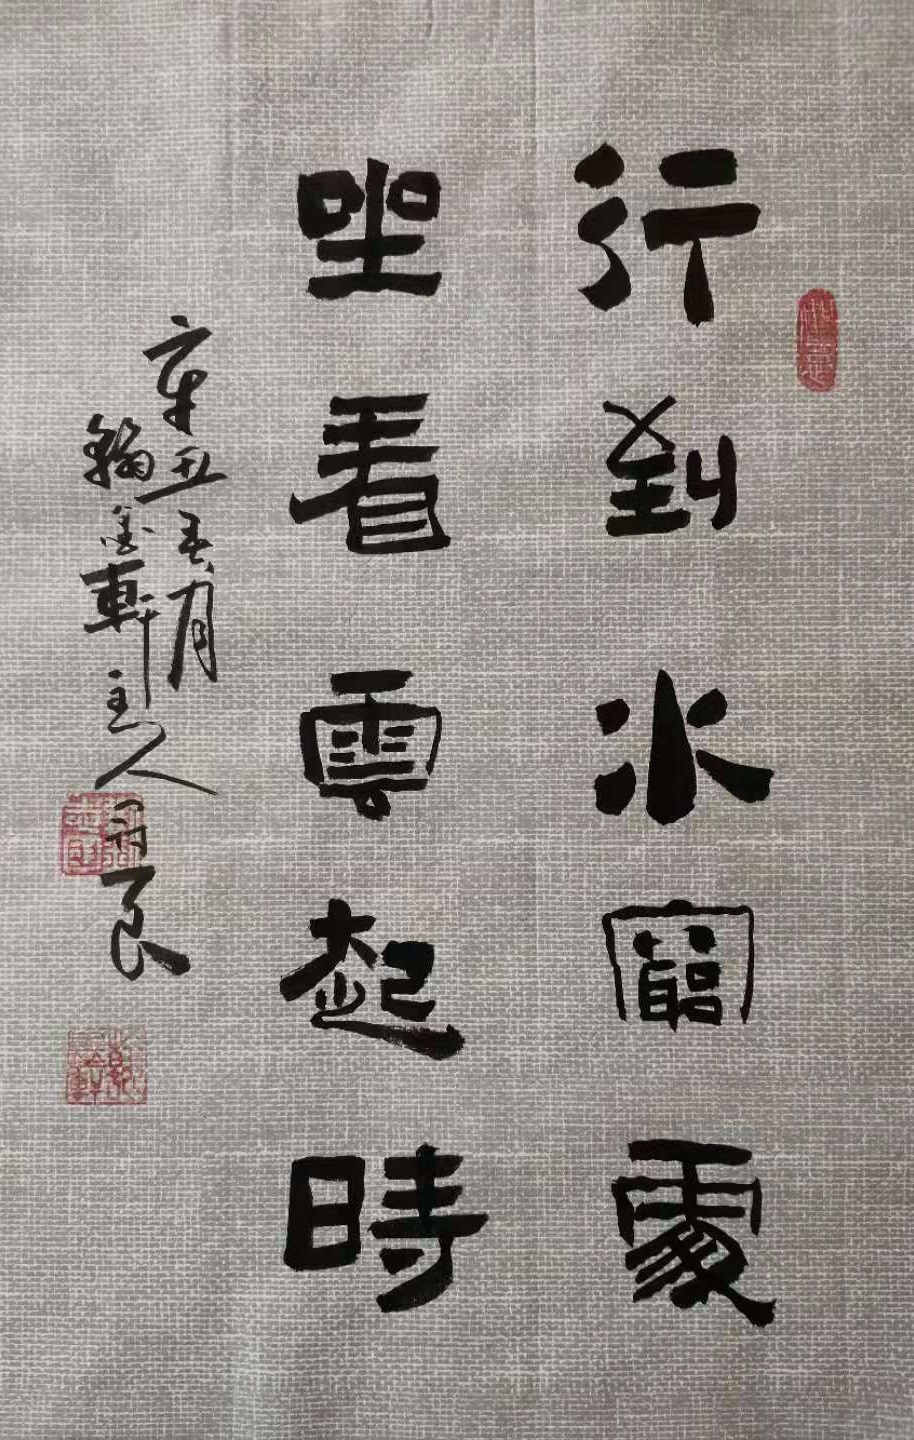 行到水窮處
坐看雲起時
辛丑五月
翰墨軒主人